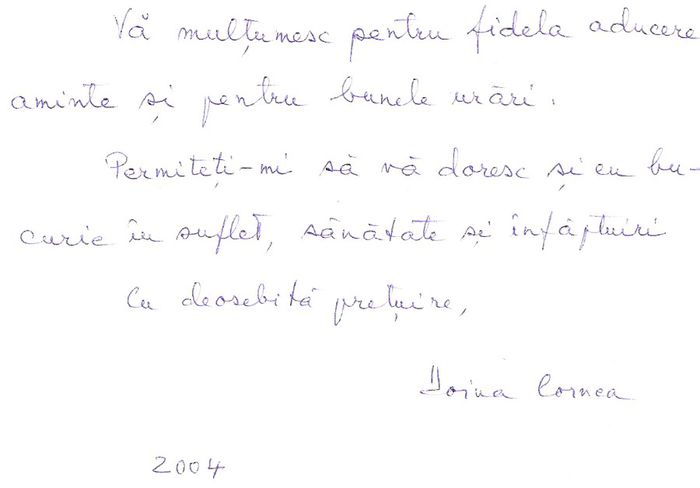 Vă mulțumesc pentru fidela aducere
aminte și pentru bunele urări.
Permiteți-mi să vă doresc și eu bu-
curie în suflet, sănătate și înfăptuiri
Cu deosebită prețuire,
Doina Cornea
2004